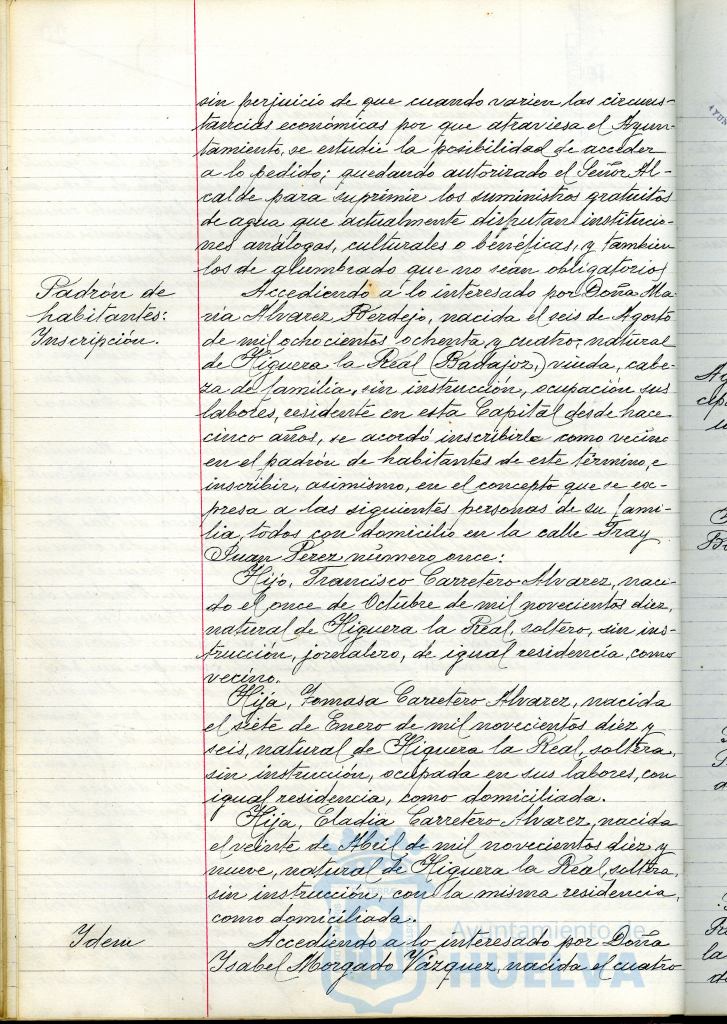 sin perjuicio de que cuando varien las circuns-
tancias económicas por que atraviesa el Ayun-
tamiento, se estudie la posibilidad de acceder
a lo pedido; quedando autorizado el Señor Al-
calde para suprimir los suministros gratuitos
de agua que actualmente disfrutan institucio-
nes análogas, culturales o benéficas, y tambien
los de alumbrado que no sean obligatorios
Padrón de
habitantes:
Inscripción.
Accediendo a lo interesado por Doña Ma-
ría Alvarez Berdejo, nacida el seis de Agosto
de mil ochocientos ochenta y cuatro, natural
de Higuera la Real (Badajoz,) viuda, cabe-
za de familia, sin instrucción, ocupación sus
labores, residente en esta Capital desde hace
cinco años, se acordó inscribirla como vecino
en el padrón de habitantes de este término, e
inscribir, asimismo, en el concepto que se ex-
presa a las siguientes personas de su fami-
lia, todos con domicilio en la calle Fray
Juan Pérez número once:
Hijo, Francisco Carretero Alvarez, naci-
do el once de Octubre de mil novecientos diez,
natural de Higuera la Real, soltero, sin ins-
trucción, jornalero, de igual residencia, como
vecino.
Hija, Tomasa Carretero Alvarez, nacida
el siete de Enero de mil novecientos diez y
seis, natural de Higuera la Real, soltera,
sin instrucción, ocupada en sus labores, con
igual residencia, como domiciliada.
Hija, Eladia Carretero Alvarez, nacida
el veinte de Abril de mil novecientos diez y
nueve, natural de Higuera la Real, soltera,
sin instrucción, con la misma residencia,
como domiciliada.
Idem
Accediendo a lo interesado por Doña
Isabel Morgado Vázquez, nacida el cuatro
Ayuntamiento de
HUELVA